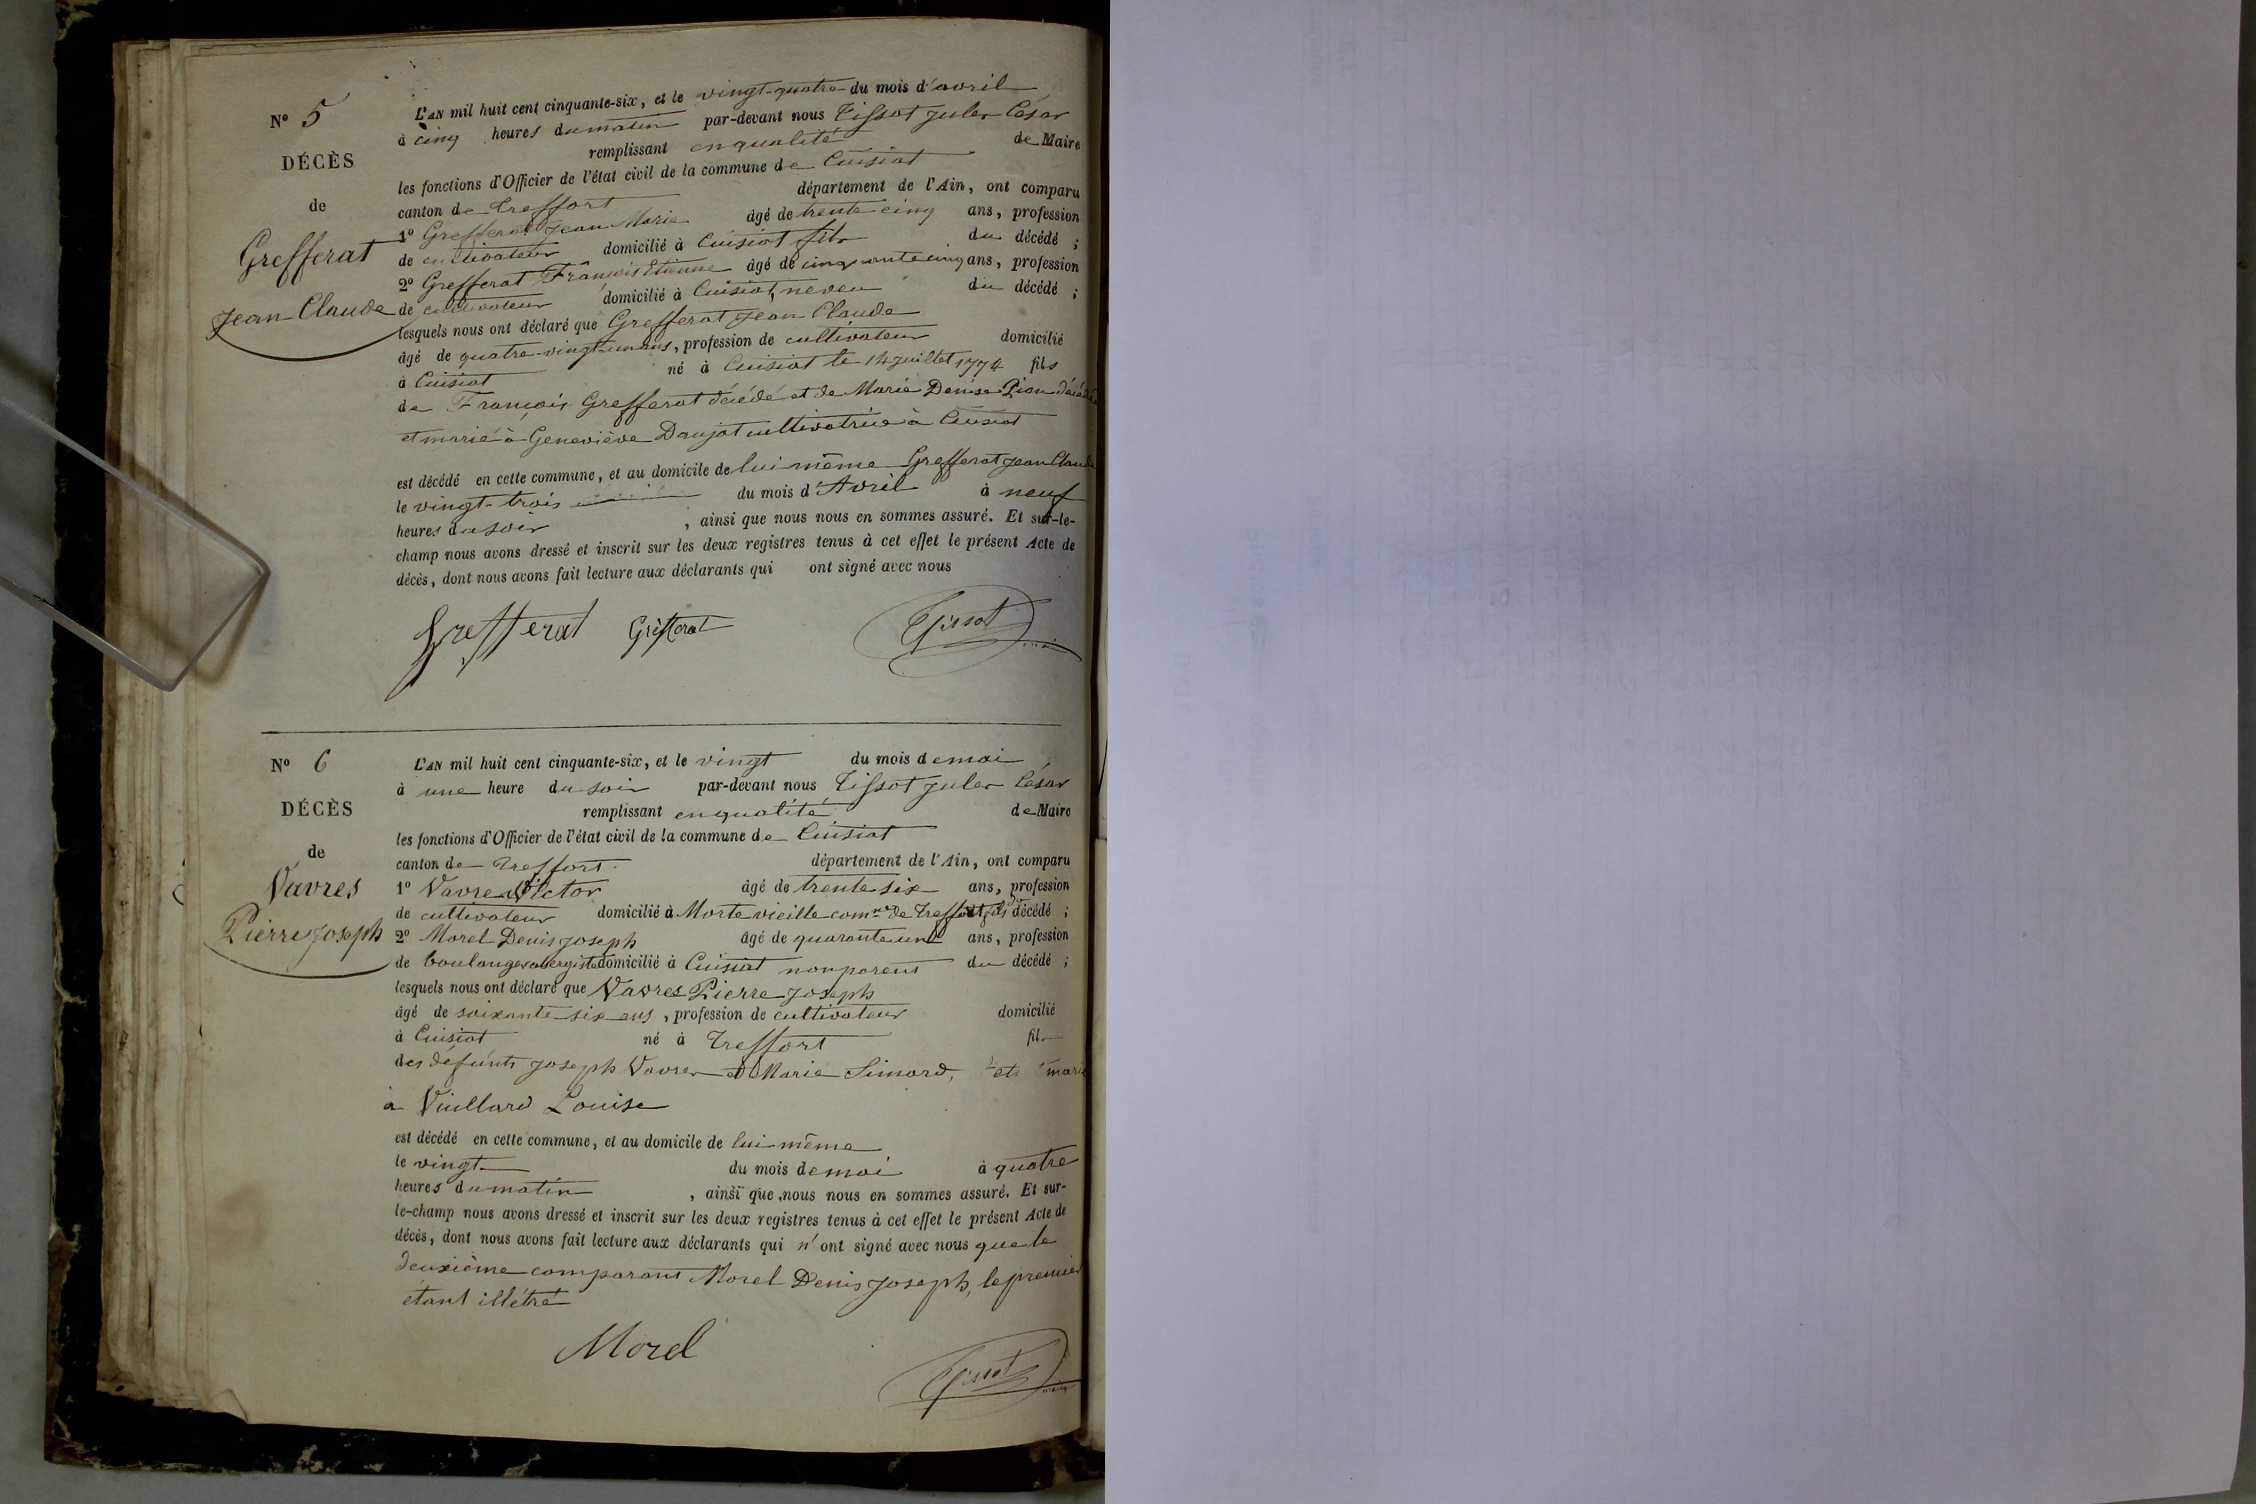 Nº 5
DÉCÈS
de
Grefferat
Jean-Claude
L'AN mil huit cent cinquante-six, et le vingt-quatre du mois d'avril
à cinq heures du matin par-devant nous Tissot Jules César
remplissant en qualité de Maire
les fonctions d'Officier de l'état civil de la commune de Cuisiat
canton de Treffort département de l'Ain, ont comparu
1º Grefferat Jean Marie âgé de trente cinq ans, profession
de cultivateur domicilié à Cuisiat fils du décédé ;
2º Grefferat François Etienne âgé de cinquante cinq ans, profession
de cultivateur domicilié à Cuisiat, neveu du décédé ;
lesquels nous ont déclaré que Grefferat Jean Claude
âgé de quatre-vingt-un ans, profession de cultivateur domicilié
à Cuisiat né à Cuisiat le 14 juillet 1774 fils
de François Grefferat décédé et de Marie Denise Pion décédée
et marié à Geneviève Daujat cultivatrice à Cuisiat
est décédé en cette commune, et au domicile de lui même Grefferat Jean Claude
le vingt-trois du mois d'Avril à neuf
heures du soir , ainsi que nous nous en sommes assuré. Et sur-le-
champ nous avons dressé et inscrit sur les deux registres tenus à cet effet le présent Acte de
décès, dont nous avons fait lecture aux déclarants qui ont signé avec nous
Grefferat Grefferat Tissot
Nº 6
DÉCÈS
de
Vavres
Pierre Joseph
L'AN mil huit cent cinquante-six, et le vingt du mois de mai
à une heure du soir par-devant nous Tissot Jules César
remplissant en qualité de Maire
les fonctions d'Officier de l'état civil de la commune de Cuisiat
canton de Treffort département de l'Ain, ont comparu
1º Vavres Victor âgé de trente six ans, profession
de cultivateur domicilié à Morte vieille comne de Treffort, fils du décédé ;
2º Morel Denis Joseph âgé de quarante un ans, profession
de boulanger aubergiste domicilié à Cuisiat non parent du décédé ;
lesquels nous ont déclaré que Vavres Pierre Joseph
âgé de soixante six ans, profession de cultivateur domicilié
à Cuisiat né à Treffort fils
des défunts Joseph Vavres et Marie Simard, et marié
à Viullard Louise
est décédé en cette commune, et au domicile de lui même
le vingt du mois de mai à quatre
heures du matin , ainsi que nous nous en sommes assuré. Et sur-
le-champ nous avons dressé et inscrit sur les deux registres tenus à cet effet le présent Acte de
décès, dont nous avons fait lecture aux déclarants qui n'ont signé avec nous que le
deuxième comparant Morel Denis Joseph, le premier
étant illétré
Morel Tissot